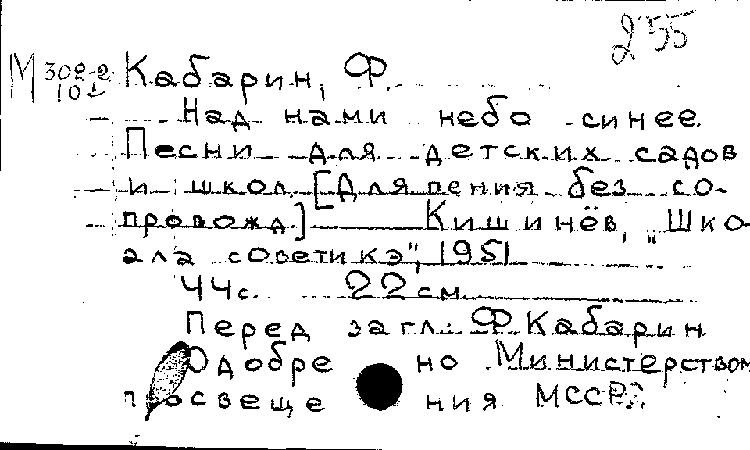 255
М 302-2 Кабарин, Ф.
101
Над нами небо синее.
Песни для детских садов
и школ. [Для пения без со-
провожд.] Кишинёв, „Шко-
ала советикэ", 1951
44с. 22 см.
Перед загл.: Ф Кабарин
Одобре но Министерством
просвеще ния МССР.